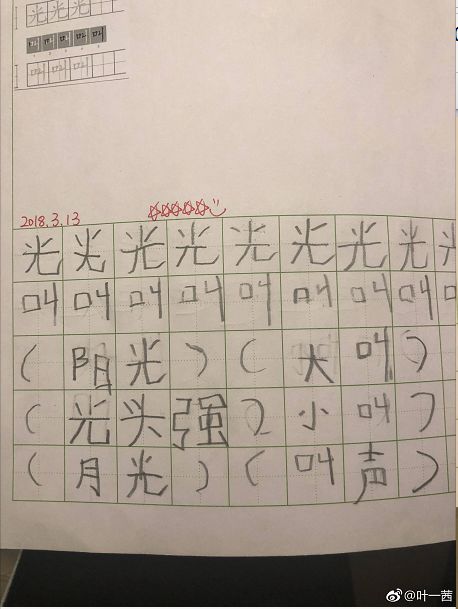 光 光 光
叫 叫 叫 叫 叫
叫 叫 叫
2018.3.13 ☆☆☆☆☆
光 光 光 光 光 光 光 光
叫 叫 叫 叫 叫 叫 叫 叫
（ 阳 光 ）（ 大 叫 ）
（ 光 头 强 ）（ 小 叫 ）
（ 月 光 ）（ 叫 声 ）
@叶一茜